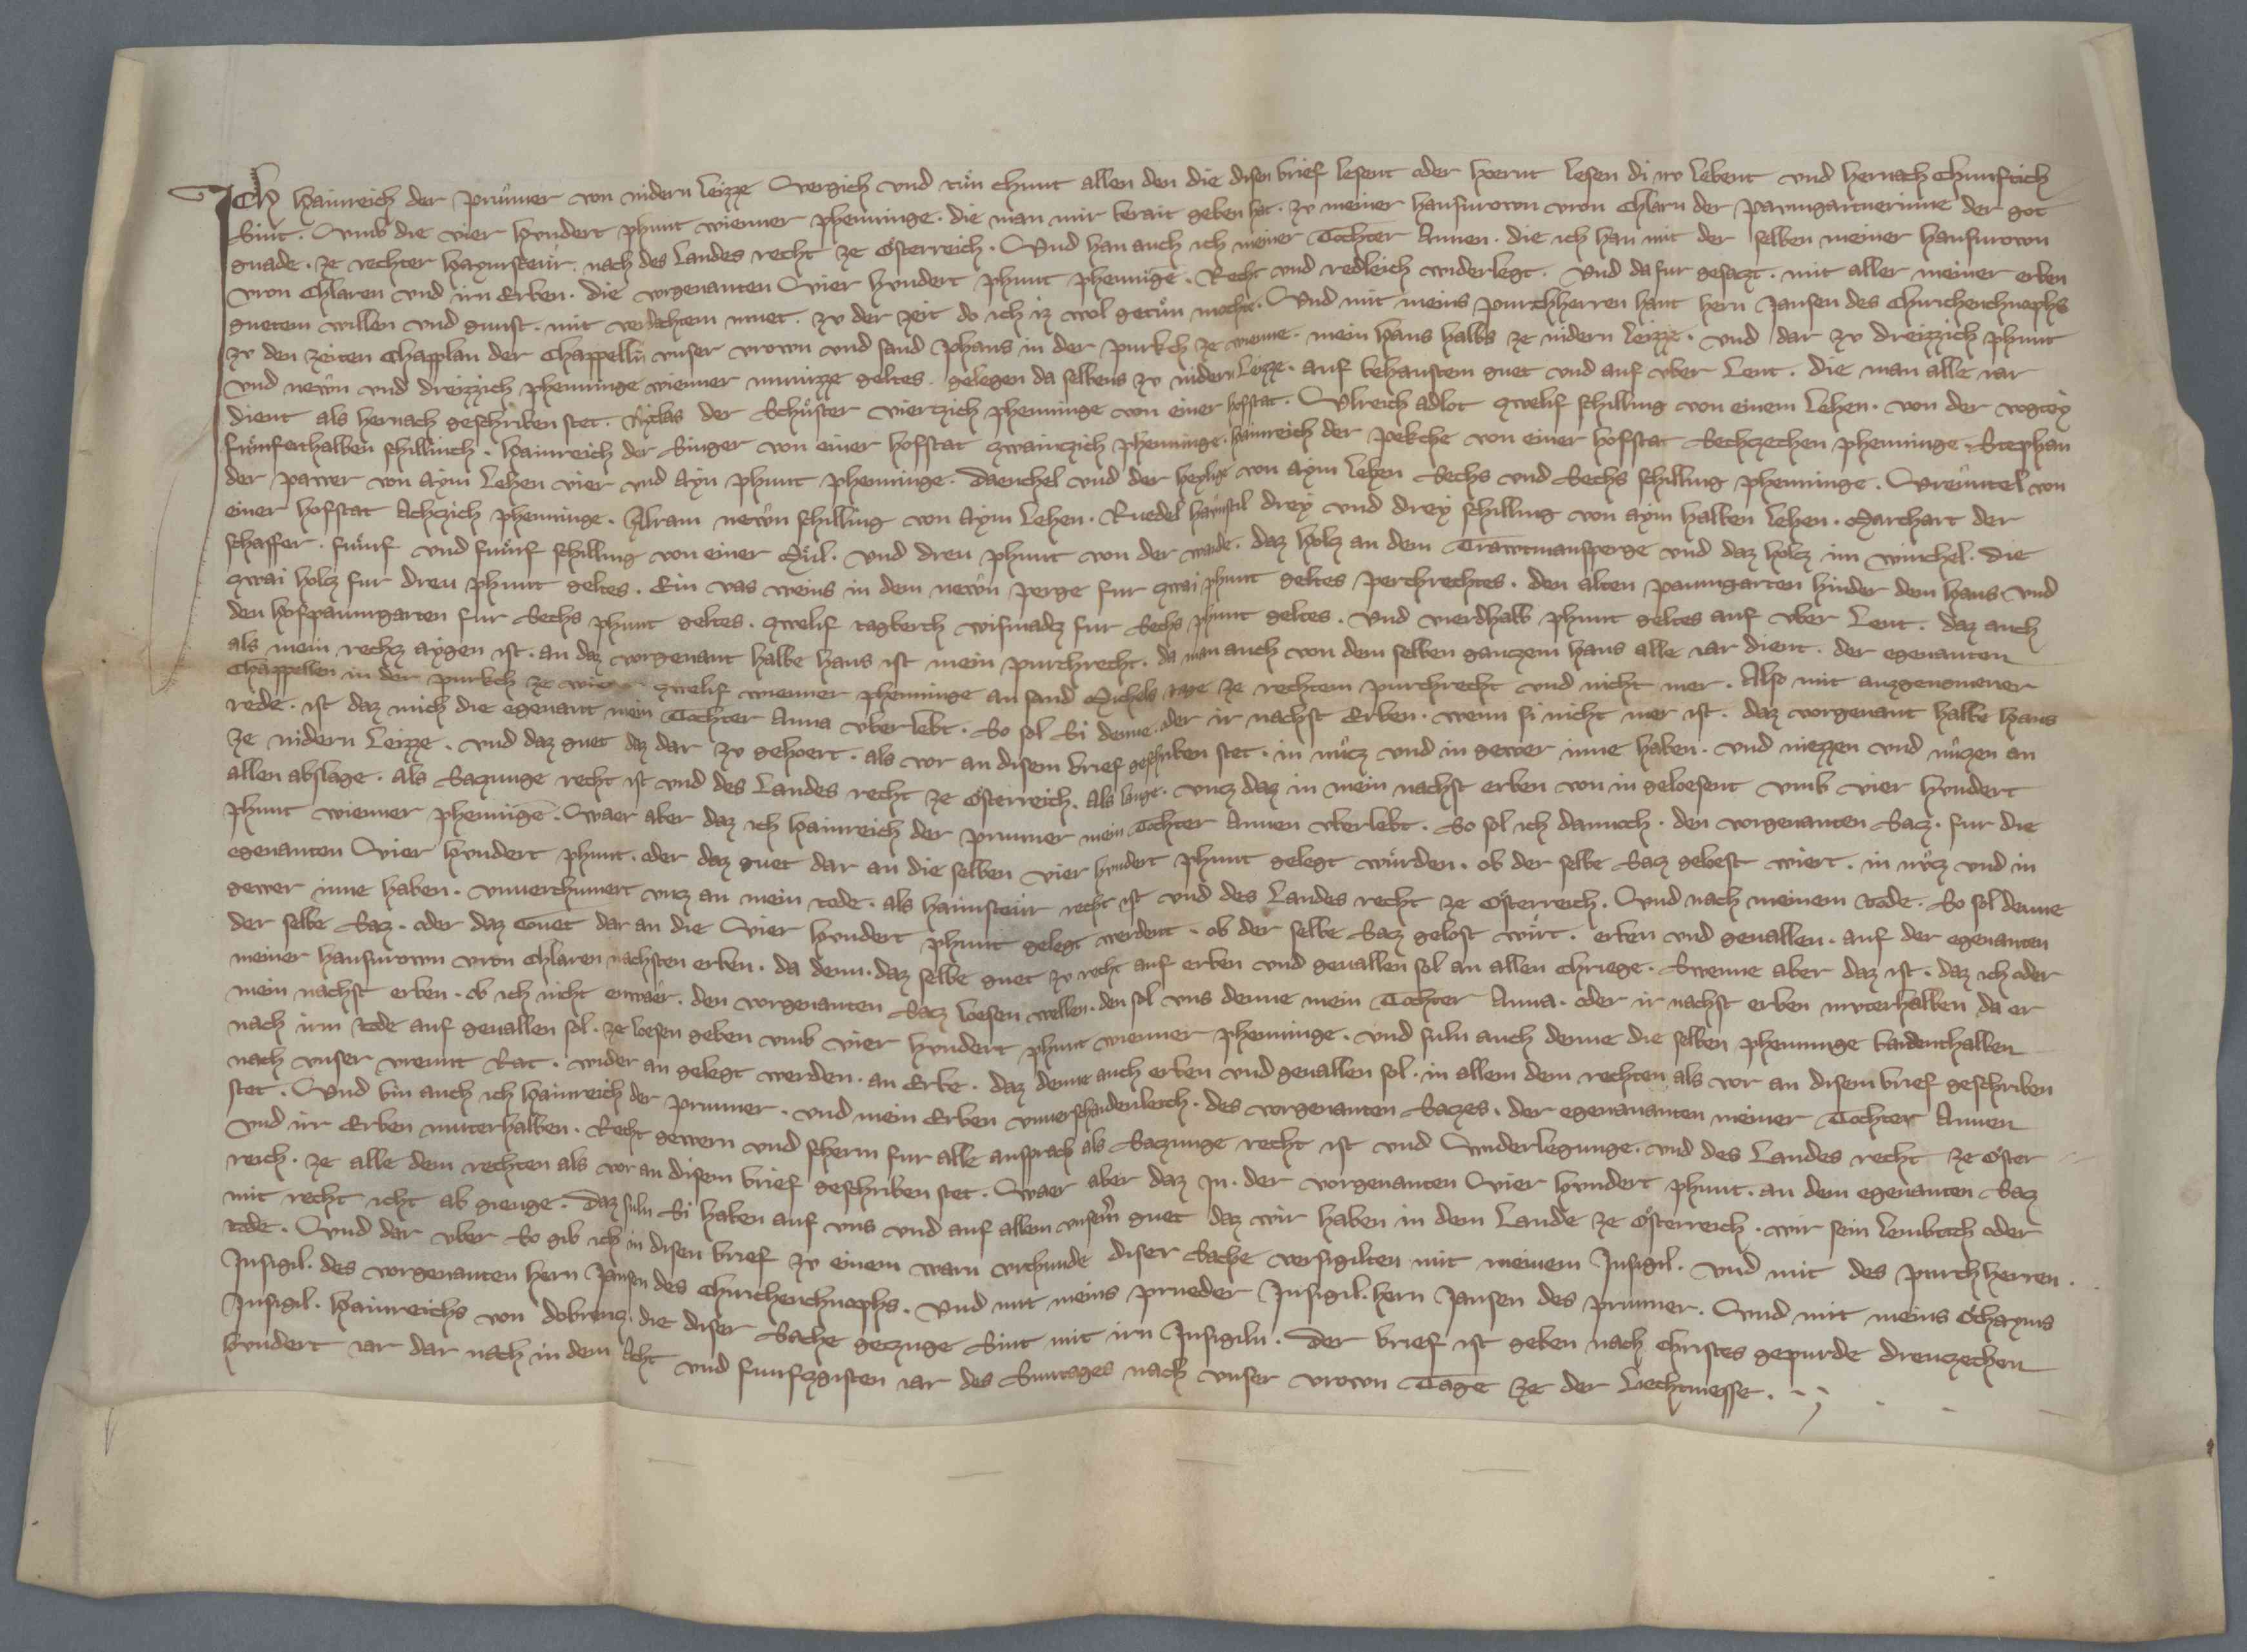 Ich Hainreich der Prunner von nidern Leizze Vergich und tuͤn chunt allen den die disen brief lesent oder hoernt lesen di nv lebent und hernach chunftich
Sint. Vmb die vier hvndert phunt wienner phenninge. die man mir berait geben hat. zv meiner hausvrown vron Chlarn der Pavmgartnerinne der got
gnade. ze rechter haymsteur. nach des Landes recht ze Osterreich. Vnd han auch ich meiner Tochter Annen. die ich han mit der selben meiner hausvrown
vron Chlaren und irn Erben. die vorgenanten Vier hvndert phunt phennige. Recht und redleich widerlegt. Vnd da fur gesazt. mit aller meiner erben
guetem willen und gunst. mit verdachtem muet. zv der zeit do ich iz wol getuͤn mocht. Vnd mit meins purchherren hant hern Jansen des Chirichenchnophs
zv den zeiten Chapplan der Chappelln unser vrown und sand Johans in der purkch ze wienne. mein Haus halbs ze nidern Leizze. und dar zv dreizzich phunt
und newn und dreizzich phenninge wienner munizze geltes. gelegen da selbens zv nidern Leizze. auf behaustem guet und auf vber Lent. die man alle iar
dient als hernach geschriben stet. Nyclas der Schuster viertzich phenninge von einer hofstat. Vlreich adlot zwelif schilling von einem Lehen. von der vogtey
funfenthalben schillinch. Hainreich der Singer von einer hofstat zwainczich phenninge. Hainreich der Pekche von einer hofstat Sechzechen phenninge. Stephan
der pawer von Aym Lehen vier und Ayn phunt phenninge. Daenchel und der heylige von aym leben Sechs und Sechs schilling phenninge. Vreuntel von
einer hofstat Achczich phenninge. Abram newn schilling von Aym Lehen. Ruedel haunstil drey und drey schilling von aym halben lehen. Marchart der
schaffer. funf und funf schilling von einer Mul. und dreu phunt von der waide. daz holz an dem Trawtmansperge und daz holcz im winchel. die
zwai holcz fur dreu phunt geltes. Ein vas weins in dem newn perge fur zwai phunt geltes perchrechtes. den alten paumgarten hinder dem haus und
den hofpaumgarten fur Sechs phunt geltes. zwelif tagberch wismadz fur Sechs phunt geltes. Vnd vierdhalb phunt geltes auf vber Lent. daz auch
als mein rechcz aygen ist. an daz vorgenant halbe haus ist mein purchrecht. da man auch von dem selben ganczem haus alle iar dient. der egenanten
Chappellen in der purkch ze wienne zwelif wienner phenninge an sand Michels tage ze rechtem purchrecht und nicht mer. Also mit auzgenomener
rede. ist daz mich die egenant mein Tochter Anna vberlebt. So sol Si denne. oder ir nachst Erben. wenn si nicht mer ist. daz vorgenant halbe Haus
ze nidern Leizze. und daz guet daz dar zv gehoert. als vor an disem brief geschriben stet. in nucz und in gewer inne haben. und niezzen und nuczen an
allen abslage. als Saczunge recht ist und des Landes recht ze Osterreich. Als lange. vncz daz in mein nachst erben von in geloesent vmb vier hvndert
phunt wienner phennige. Waer aber daz ich Hainreich der Prunner mein Tochter Annen vberlebt. So sol ich dannoch. den vorgenanten Sacz. fur die
egenanten Vier hvndert phunt. oder daz guet dar an die selben vier hvndert phunt gelegt wurden. ob der selbe Sacz geloest wiert. in nucz und in
gewer inne haben. vnuerchumert vncz an mein tode. als haimsteur recht ist und des Landes recht ze Osterreich. Vnd nach meinem tode. So sol denne
der selbe Sacz. oder daz Guet dar an die Vier hvndert phunt gelegt werdent. ob der selbe Sacz gelost wurt. erben und geuallen. auf der egenanten
meiner hausvrown vron Chlaren nachsten erben. da denn. daz selbe guet zv recht auf erben und geuallen sol an allen chriege. Swenne aber daz ist. daz ich oder
mein nachst erben. ob ich nicht enwaer. den vorgenanten Sacz loesen wellen. den sol uns denne mein Tochter Anna. oder ir nachst erben muterhalben da er
nach irm tode auf geuallen sol. ze loesen geben vmb vier hvndert phunt wienner phenninge. und suln auch denne die selben phenninge baidenthalben
nach unser vreunt Rat. wider an gelegt werden. an Erbe. daz denne auch erben und geuallen sol. in allem dem rechten als vor an disem brief geschriben
stet. Vnd bin auch ich Hainreich der Prunner. und mein Erben vnuerschaidenleich. des vorgenanten Saczes. der egenananten meiner Tochter Annen
und irr Erben muterhalben. Recht gewern und scherm fur alle ansprach als Saczunge recht ist und Widerlegunge. und des Landes recht ze Oster
reich. ze alle dem rechten als vor an disem brief geschriben stet. Waer aber daz In. der vorgenanten Vier hvndert phunt. an dem egenanten Sacz
mit recht icht ab gienge. Daz suln Si haben auf uns und auf allem unserm guet daz wir haben in dem Lande ze Osterreich. wir sein lembtich oder
tode. Vnd dar vber So gib ich in disen brief zv einem warn vrchunde diser Sache versigilten mit meinem Insigil. und mit des purchherren.
Insigil. des vorgenanten hern Jansen des Chirichenchnophs. Vnd mit meins prueder Insigil. hern Jansen des Prunner. Vnd mit meins Ochayms
Insigil. Hainreichs von dobrencz. die diser Sache gezuge Sint mit irn Insigiln. Der brief ist geben nach Christes gepurde dreuzechen
hvndert iar dar nach in dem Acht und funfczgisten iar des Suntages nach unser vrown Tage ze der Liechtmesse.